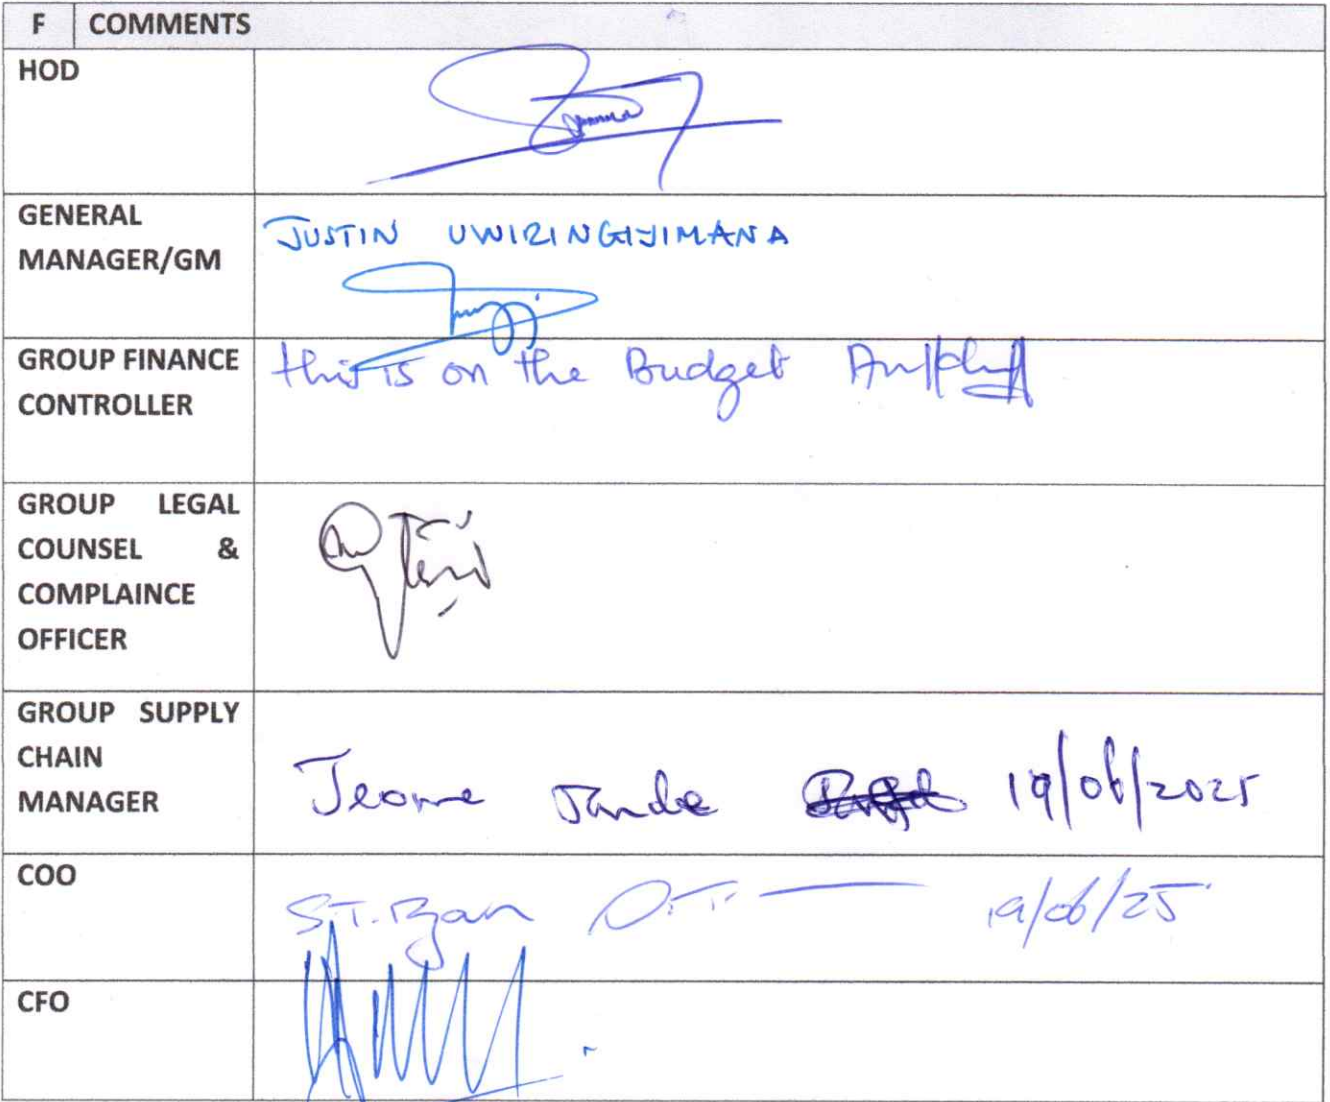 F COMMENTS
HOD
GENERAL
MANAGER/GM
JUSTIN UWIRINGIJIMANA
GROUP FINANCE
CONTROLLER
this is on the Budget
GROUP LEGAL
COUNSEL &
COMPLAINCE
OFFICER
GROUP SUPPLY
CHAIN
MANAGER
Jeome 19/06/2025
COO
19/06/25
CFO